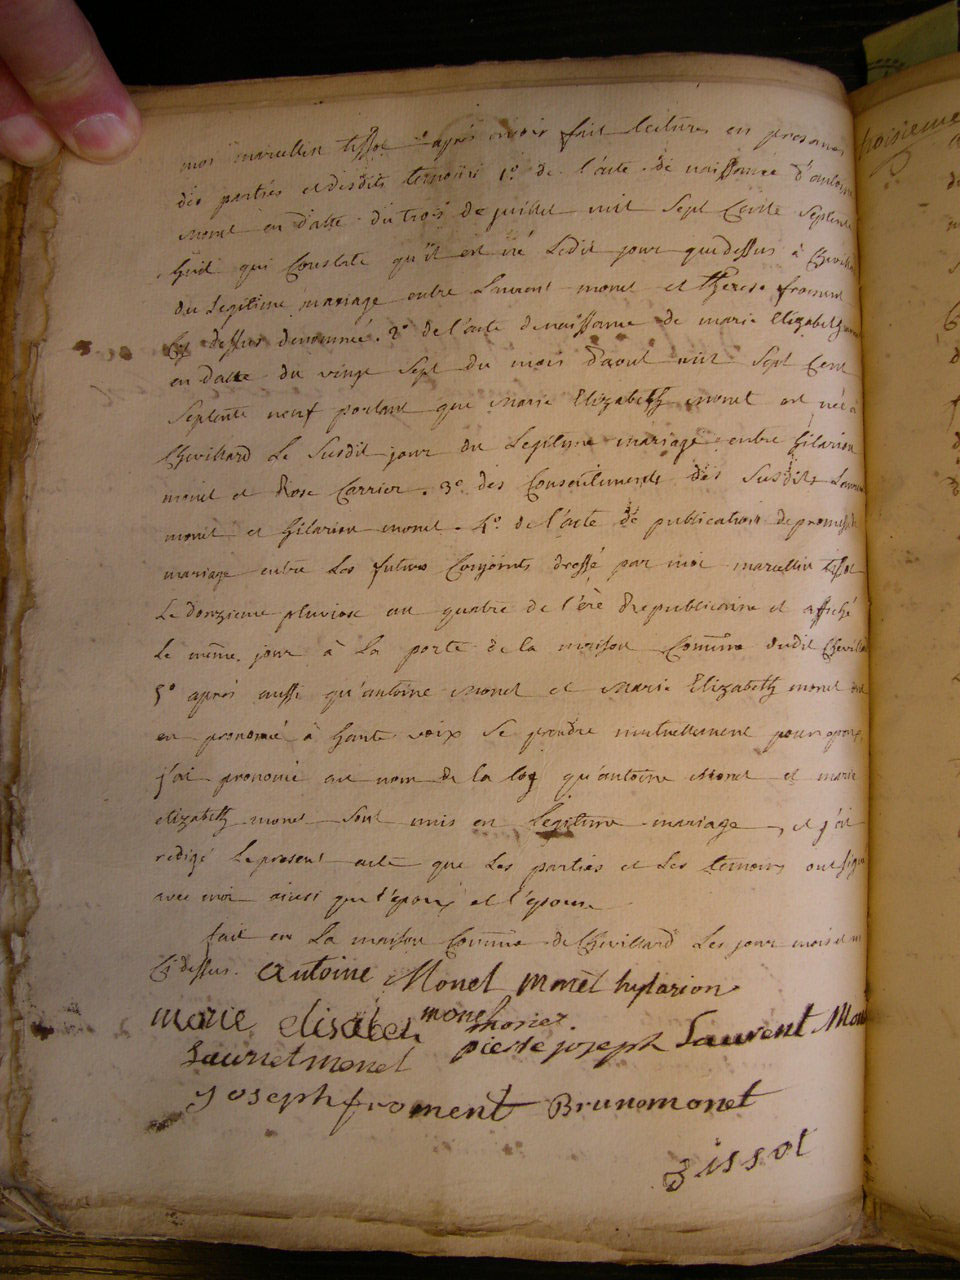 moi marcellin tissot après avoir fait lecture en presence
des parties et desdits temoins 1° de l'acte de naissance d'antoine
monet en datte du trois de juillet mil sept cent septente
huit qui constate qu'il est né ledit jour que dessus à Chevillard
du legitime mariage entre Laurent monet et therese froment
cy dessus denommé. 2° de l'acte de naissance de marie Elizabeth monet
en datte du vingt sept du mois d'aout mil sept cent
septente neuf portant que marie Elizabeth monet est née à
Chevillard le susdit jour du legitime mariage entre hilarion
monet et Rose Carrier. 3° des consentements des susdits Laurent
monet et hilarion monet. 4° de l'acte de publication de promesse de
mariage entre les futurs conjoints dressé par moi marcellin tissot
le douzieme pluviose an quatre de l'ere republicaine et affiché
le même jour à la porte de la maison commune dudit Chevillard
5° après aussi qu'antoine monet et marie Elizabeth monet ont
en prononcé à haute voix se prendre mutuellement pour epoux,
j'ai prononcé au nom de la loy qu'antoine monet et marie
elizabeth monet sont unis en legitime mariage, et j'ai
redigé le present acte que les parties et les temoins ont signé
avec moi ainsi que l'epoux et l'epouse
fait en la maison commune de Chevillard les jour mois et an
cy dessus. antoine Monet monet hylarion
marie elisabeth monet
pierre joseph monet Laurent Monet
Laurnet monet
Joseph froment Bruno monet
Tissot
troisieme